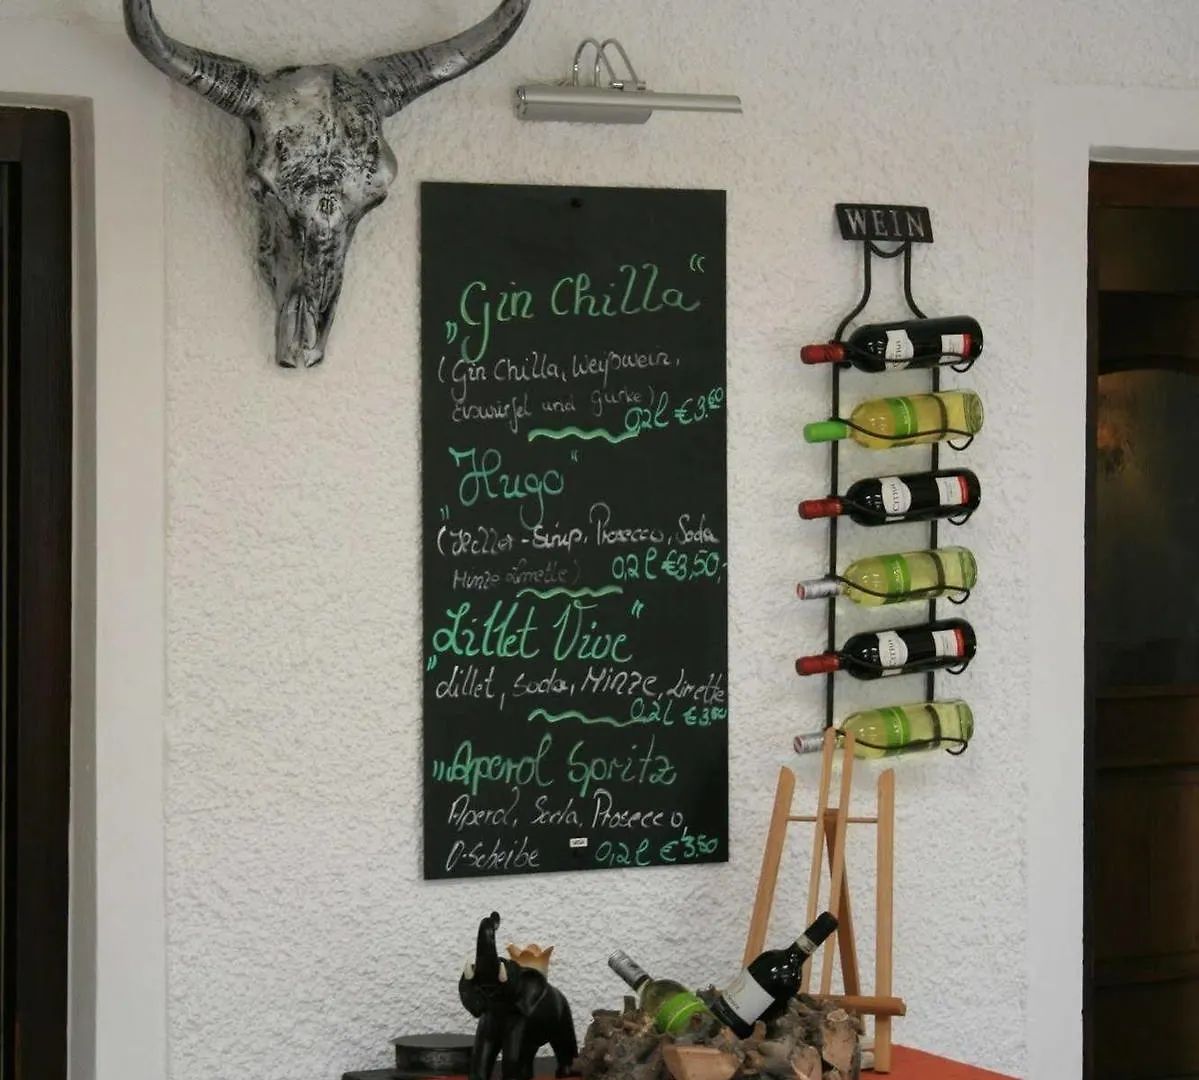 „Gin Chilla“
(Gin Chilla, Weißwein,
Eiswürfel und Gurke)
0,2l €3.60
„Hugo“
(Holler-Sirup, Prosecco, Soda
Minze Limette)
0,2l €3,50,-
„Lillet Vive“
Lillet, Soda, Minze, Limette
0,2l €3.50
„Aperol Spritz
Aperol, Soda, Prosecco,
O-Scheibe
0,2l €3.50
WEIN